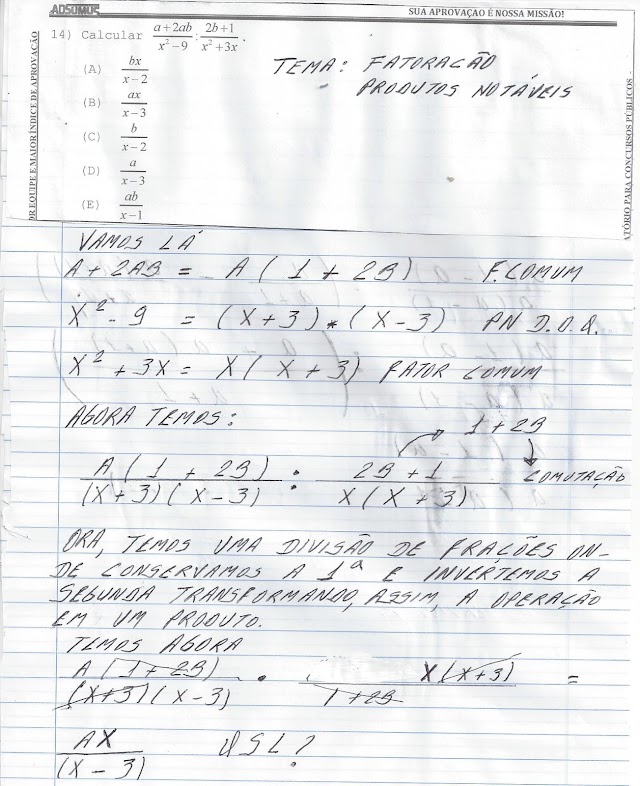 ADSUMUS
SUA APROVAÇÃO É NOSSA MISSÃO!
14) Calcular (a+2ab)/(x²−9) : (2b+1)/(x²+3x) .
TEMA: FATORAÇÃO
PRODUTOS NOTÁVEIS
(A) bx/(x−2)
(B) ax/(x−3)
(C) b/(x−2)
(D) a/(x−3)
(E) ab/(x−1)
OR EQUIPE E MAIOR ÍNDICE DE APROVAÇÃO
ATÓRIO PARA CONCURSOS PÚBLICOS
VAMOS LÁ
A + 2AB = A ( 1 + 2B ) F. COMUM
X² - 9 = (X+3) * (X-3) PN D.O.Q.
X² + 3X = X( X + 3 ) FATOR COMUM
AGORA TEMOS:
1 + 2B
A ( 1 + 2B ) / (X+3)(X-3) : 2B + 1 / X(X+3) COMUTAÇÃO
ORA, TEMOS UMA DIVISÃO DE FRAÇÕES ON-
DE CONSERVAMOS A 1ª E INVERTEMOS A
SEGUNDA TRANSFORMANDO, ASSIM, A OPERAÇÃO
EM UM PRODUTO.
TEMOS AGORA
A (1+2B) / (X+3)(X-3) . X(X+3) / 1+2B =
AX / (X-3)